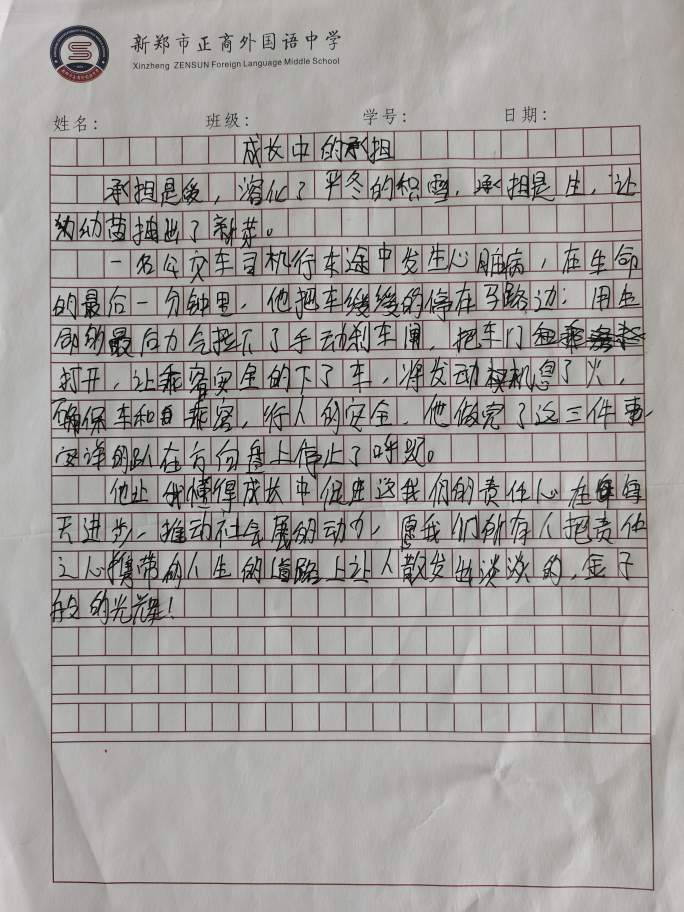 新郑市正商外国语中学
Xinzheng ZENSUN Foreign Language Middle School
姓名： 班级： 学号： 日期：
成长中的承担
承担是爱，溶化了严冬的积雪，承担是生，让
幼苗抽出了新芽。
一名公交车司机行车途中发生心脏病，在生命
的最后一分钟里，他把车缓缓的停在马路边；用生
命的最后力气拉下了手动刹车闸，把车门
打开，让乘客安全的下了车，将发动机息了火，
确保车和乘客，行人的安全，他做完了这三件事，
安详的趴在方向盘上停止了呼吸。
他让我懂得成长中促进这我们的责任心在每
天进步，推动社会展的动力，愿我们所有人把责任
之心携带的人生的道路上让人散发出淡淡的，金子
般的光耀！